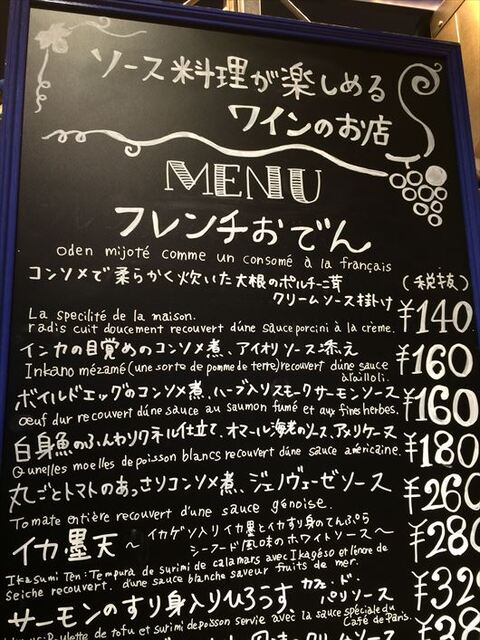 ソース料理が楽しめる
ワインのお店
MENU
フレンチおでん
oden mijoté comme un consomé à la français
コンソメで柔らかく炊いた大根のポルチーニ茸
クリームソース掛け
(税抜)
¥140
La specilité de la maison.
radis cuit doucement recouvert d'une sauce porcini à la crème.
インカの目覚めのコンソメ煮、アイオリソース添え
¥160
Inkano mézamé (une sorte de pomme de terre) recouvert d'une sauce
àl'ailloli.
ボイルドエッグのコンソメ煮、ハーブ入りスモークサーモンソース
¥160
œuf dur recouvert d'une sauce au saumon fumé et aux fines herbes.
白身魚のふんわりクネル仕立て、オマール海老のソース、アメリケース
¥180
Qunelles moelles de poisson blancs recouvert d'une sauce américaine.
丸ごとトマトのあっさりコンソメ煮、ジェノヴェーゼソース
¥260
Tomate entière recouvert d'une sauce génoise.
イカ墨天 ～ イカゲソ入りイカ墨とイカすり身のてんぷら
シーフード風味のホワイトソース～
¥280
Ikasumi Ten: Tempura de surimi de calamars avec Ikagéso et l'encre de
Seiche recouvert d'une sauce blanche saveur fruits de mer.
サーモンのすり身入りひろうす、カフェ・ド・
パリソース
¥320
de tofu et surimi de poisson servie avec la sauce spéciale du
Café de Paris.